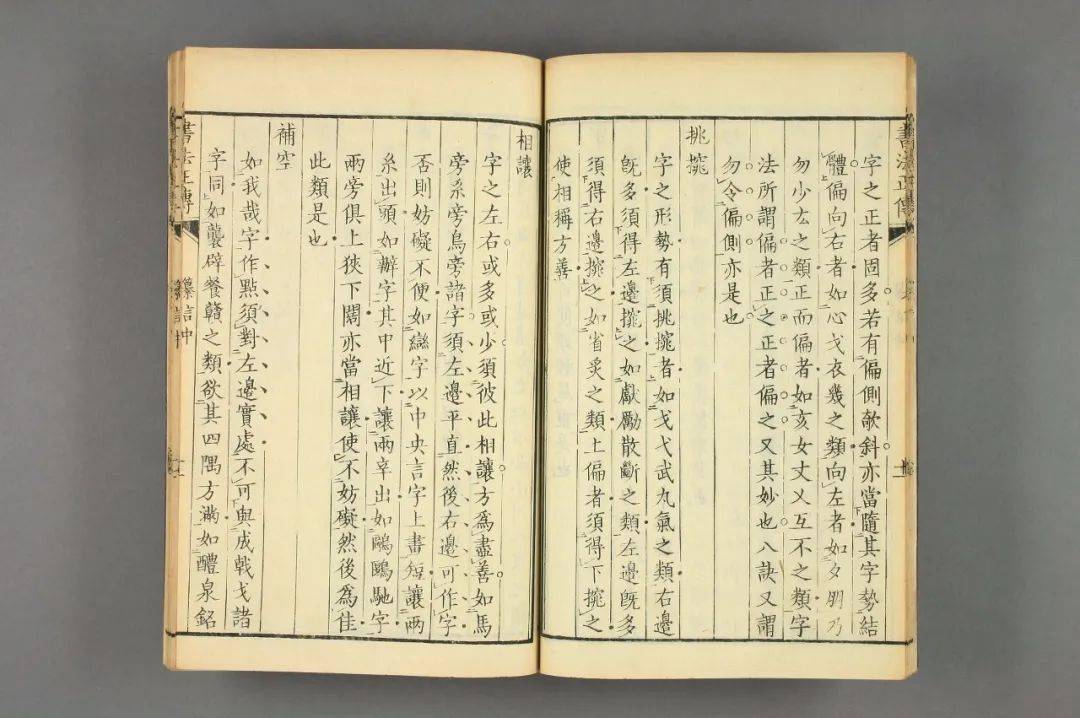 字之正者固多若有偏側欹斜亦當隨其字勢結
體偏向右者如心戈衣幾之類向左者如夕朋乃
勿少厷之類正而偏者如亥女丈乂互不之類字
法所謂偏者正之正者偏之又其妙也八訣又謂
勿令偏側亦是也
挑㨫
字之形勢有須挑㨫者如戈弋武九氣之類右邊
旣多須得左邊㨫之如獻勵散斷之類左邊旣多
須得右邊㨫之如省炙之類上偏者須得下㨫之
使相稱方善
相讓
字之左右或多或少須彼此相讓方爲盡善如馬
旁糸旁鳥旁諸字須左邊平直然後右邊可作字
否則妨礙不便如䜌字以中央言字上畫短讓兩
糸出頭如辦字其中近下讓兩辛出如鷗鷗馳字
兩旁俱上狹下闊亦當相讓使不妨礙然後爲佳
此類是也
補空
如我哉字作點須對左邊實處不可與成戟戈諸
字同如襲辟餐贛之類欲其四隅方滿如醴泉銘
書法正傳
書法正傳
纂言中